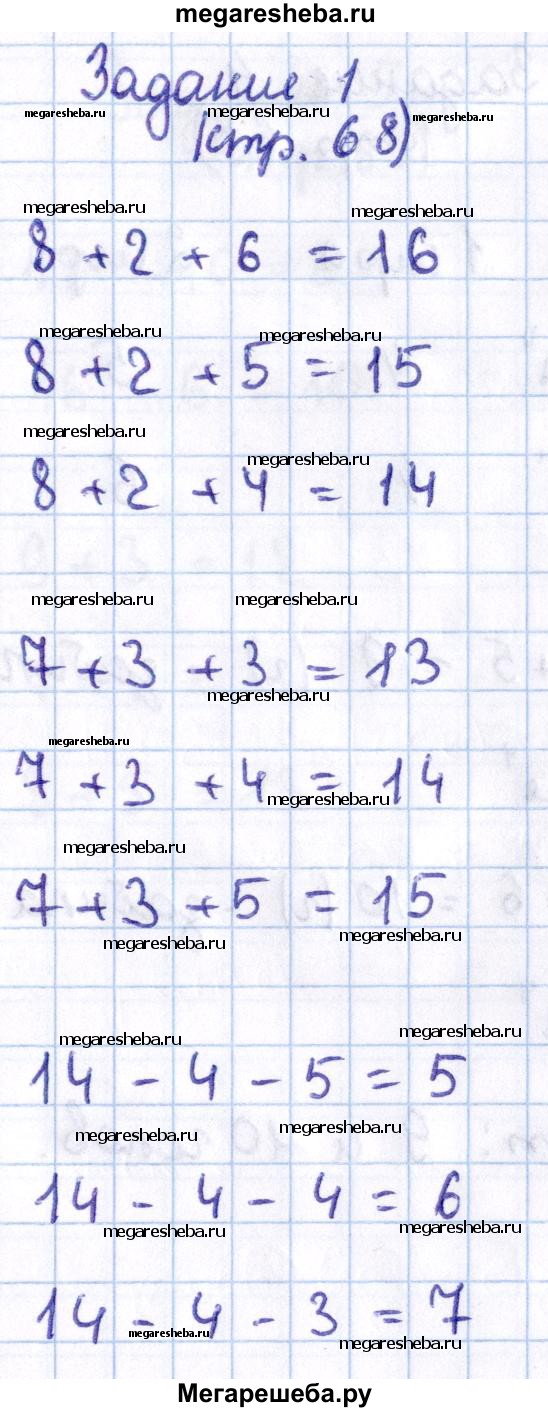 megaresheba.ru
Задание 1
megaresheba.ru megaresheba.ru megaresheba.ru
(стр. 68)
megaresheba.ru megaresheba.ru
8 + 2 + 6 = 16
megaresheba.ru megaresheba.ru
8 + 2 + 5 = 15
megaresheba.ru
megaresheba.ru
8 + 2 + 4 = 14
megaresheba.ru megaresheba.ru
7 + 3 + 3 = 13
megaresheba.ru
megaresheba.ru
7 + 3 + 4 = 14
megaresheba.ru
megaresheba.ru
7 + 3 + 5 = 15
megaresheba.ru megaresheba.ru
megaresheba.ru megaresheba.ru
14 - 4 - 5 = 5
megaresheba.ru megaresheba.ru
14 - 4 - 4 = 6
megaresheba.ru megaresheba.ru
14 - 4 - 3 = 7
megaresheba.ru megaresheba.ru
Мегарешеба.ру